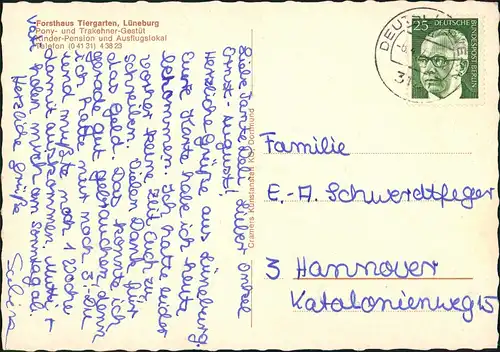 Forsthaus Tiergarten, Lüneburg
Pony- und Trakehner-Gestüt
Kinder-Pension und Ausflugslokal
Telefon (0 41 31) 4 38 23
Liebe Tante Bärbel, lieber Onkel
Ernst-August!
Herzliche Grüße aus Lüneburg.
Eure Karte habe ich heute
bekommen. Ich hatte leider
vorher keine Zeit Euch zu
schreiben. Vielen Dank für
das Geld. Das konnte ich
gerade gut gebrauchen, denn
ich hatte nur noch 3,- DM
und mußte noch 1 Woche
damit auskommen. Mutti +
Vati holen mich am Sonntag ab.
Herzliche Grüße
Sabine
Cramers Kunstanstalt KG, Dortmund
25
DEUTSCHE
BUNDESPOST BERLIN
DEUTSCH
Familie
E.-A. Schwerdtfeger
3 Hannover
Katalonienweg 15